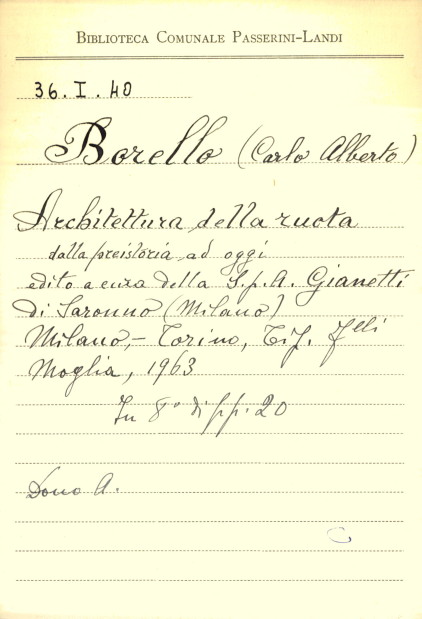 BIBLIOTECA COMUNALE PASSERINI-LANDI
36. I. 40
Borello (Carlo Alberto)
Architettura della ruota
dalla preistoria ad oggi
edito a cura della S.p.A. Gianetti
di Saronno (Milano)
Milano, - Torino, Tip. F.lli
Moglia, 1963
In 8° di pp. 20
Dono A.